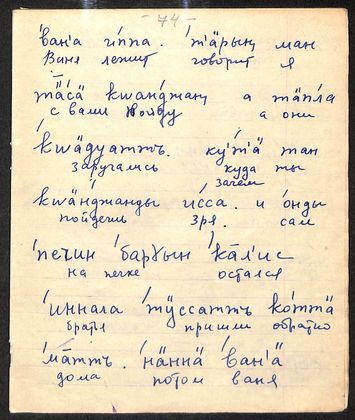 - 74 -
'ван'а г'и́ппа. 'т'äрын, ман
Ваня лежит говорит я
тäсä кwанӌжан, а тäпла
с вами пойду а они
'кwäдуаттъ. ку'т'ä тан
заругались куда ты
зачем
кwäнӌжанды и́сса. и о́нды
пойдешь зря. сам
'печин 'барɣын 'кäл'ис
на печке остался
'иннала 'тÿссаттъ ко́ттä
братья пришли обратно
'мāттъ. 'нäннä 'ван'ä
дома потом ваня